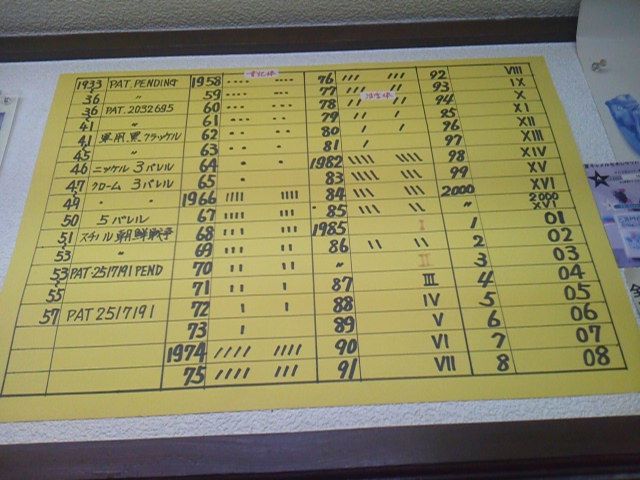 1933 PAT. PENDING 1958 •••• •••• 76 /// /// 92 VIII
36 〃 59 ••• •••• 77 // // 93 IX
36 PAT. 2032695 60 ••• ••• 78 // // 94 X
41 61 •• ••• 79 / // 95 XI
41 軍用 黒クラックル 62 •• •• 80 / / 96 XII
45 63 • •• 81 / 97 XIII
46 ニッケル 3バレル 64 • • 1982 \\\\ \\\\ 98 XIV
47 クローム 3バレル 65 • 83 \\\ \\\\ 99 XV
49 〃 〃 1966 |||| |||| 84 \\\ \\\ 2000 XVI
50 5バレル 67 ||| |||| 85 \\ \\\ 〃 2000 XVI
51 スチール 朝鮮戦争 68 ||| ||| 1985 I 1 01
53 〃 69 || ||| 86 \\ \\ 2 02
53 PAT.2517191 PEND 70 || || 〃 II 3 03
55 71 | || 87 III 4 04
57 PAT 2517191 72 | | 88 IV 5 05
73 | 89 V 6 06
1974 //// //// 90 VI 7 07
75 /// //// 91 VII 8 08